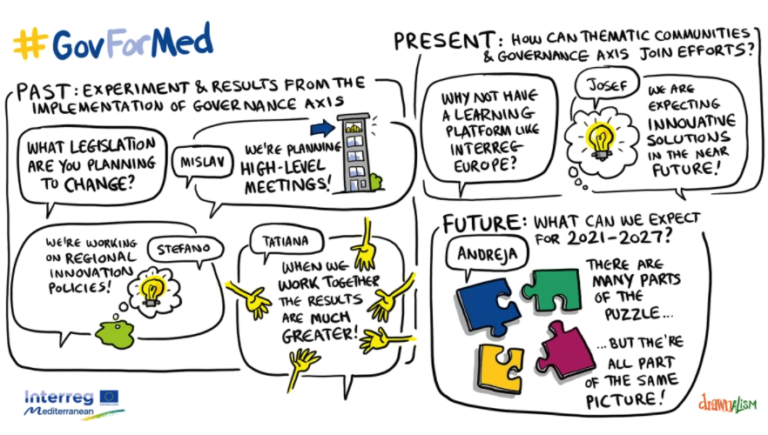 #GovForMed
PAST: EXPERIMENT & RESULTS FROM THE
IMPLEMENTATION OF GOVERNANCE AXIS
WHAT LEGISLATION
ARE YOU PLANNING
TO CHANGE?
MISLAV
WE'RE PLANNING
HIGH-LEVEL
MEETINGS!
WE'RE WORKING
ON REGIONAL
INNOVATION
POLICIES!
STEFANO
TATIANA
WHEN WE
WORK TOGETHER
THE RESULTS
ARE MUCH
GREATER!
PRESENT: HOW CAN THEMATIC COMMUNITIES
& GOVERNANCE AXIS JOIN EFFORTS?
WHY NOT HAVE
A LEARNING
PLATFORM LIKE
INTERREG
EUROPE?
JOSEF
WE ARE
EXPECTING
INNOVATIVE
SOLUTIONS
IN THE NEAR
FUTURE!
FUTURE: WHAT CAN WE EXPECT
FOR 2021-2027?
ANDREJA
THERE ARE
MANY PARTS
OF THE
PUZZLE...
...BUT THE'RE
ALL PART
OF THE SAME
PICTURE!
Interreg
Mediterranean
drawnalism